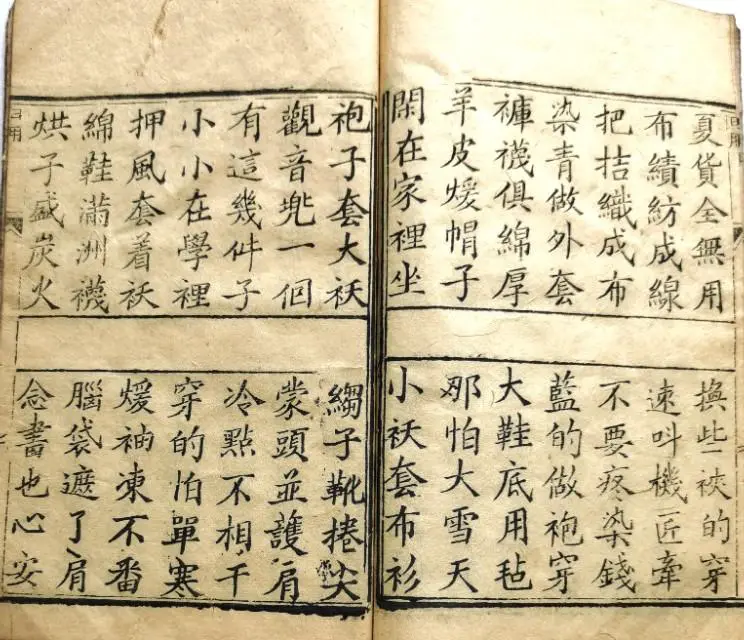 夏貨全無用
換些裌的穿
布績紡成線
速叫機匠牽
把拮織成布
不要疼染錢
染青做外套
藍的做袍穿
褲襪俱綿厚
大鞋底用毡
羊皮煖帽子
那怕大雪天
閑在家裡坐
小袄套布衫
袍子套大袄
縐子靴捲尖
觀音兠一個
蒙頭並護肩
有這幾件子
冷點不相干
小小在學裡
穿的怕單寒
押風套着袄
煖袖凍不番
綿鞋滿洲襪
腦袋遮了肩
烘子盛炭火
念書也心安